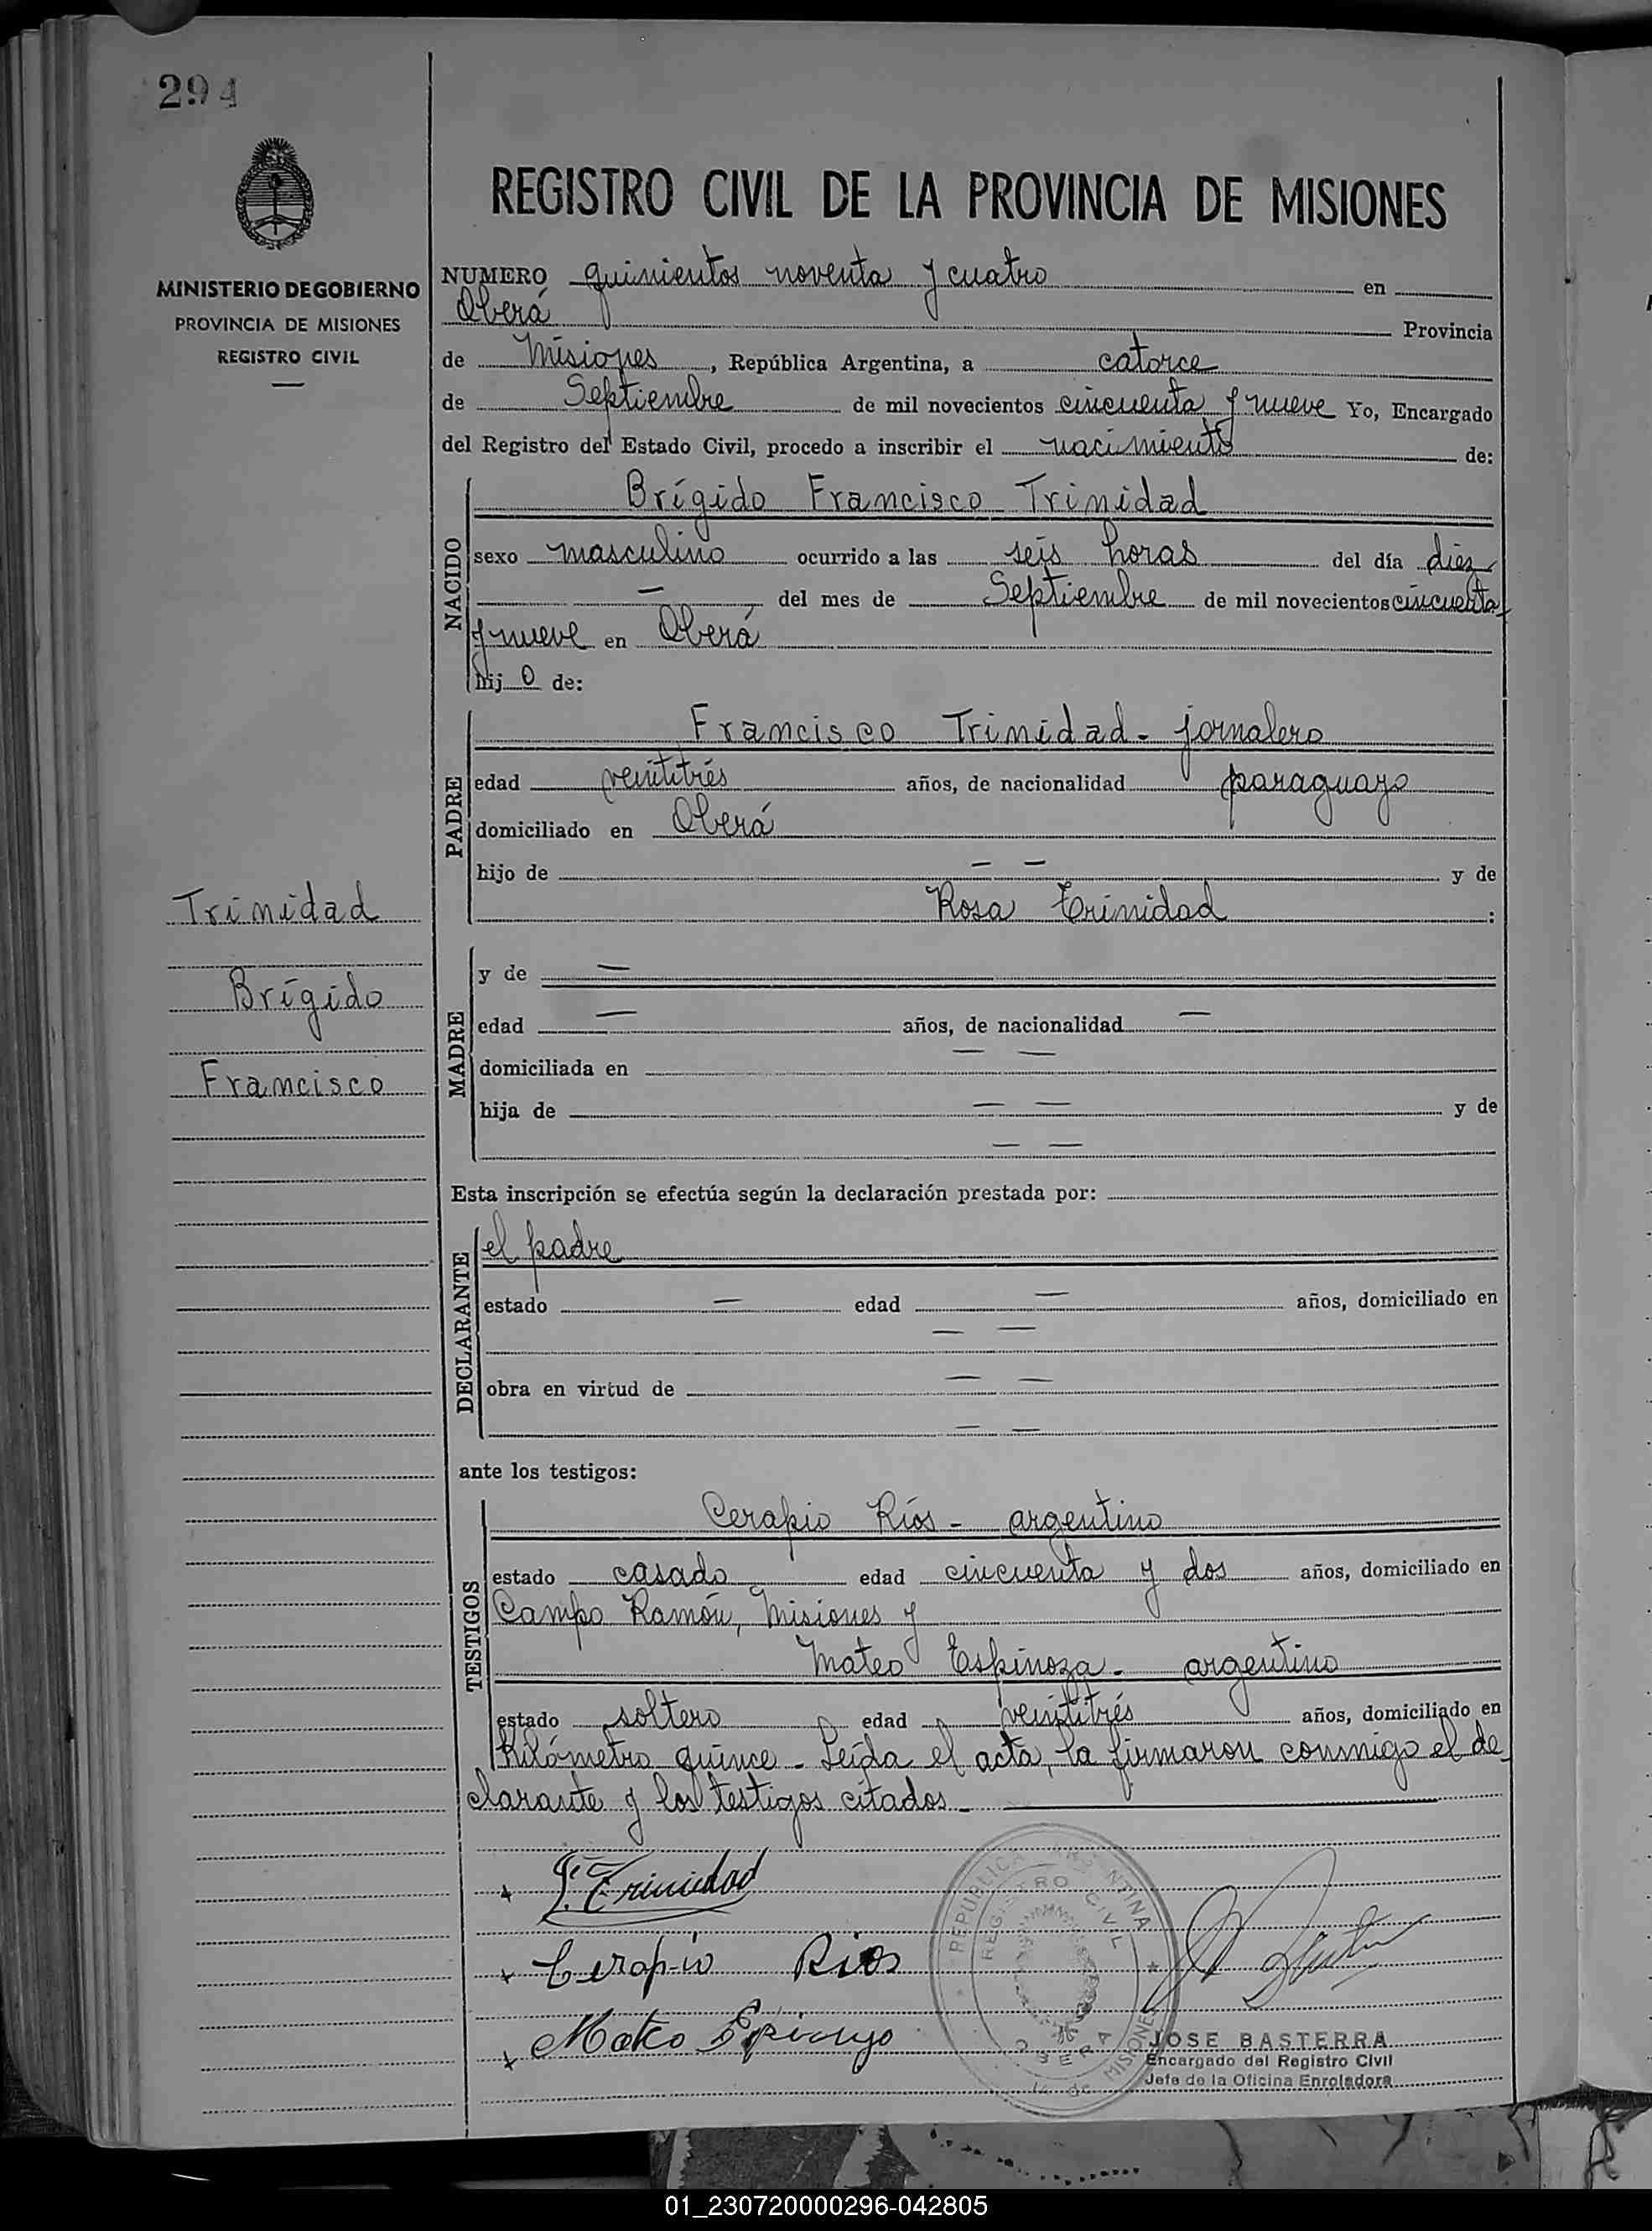 294
MINISTERIO DE GOBIERNO
PROVINCIA DE MISIONES
REGISTRO CIVIL
REGISTRO CIVIL DE LA PROVINCIA DE MISIONES
NUMERO quinientos noventa y cuatro en
Oberá Provincia
de Misiones, República Argentina, a catorce
de Septiembre de mil novecientos cincuenta y nueve Yo, Encargado
del Registro del Estado Civil, procedo a inscribir el nacimiento de:
NACIDO
Brígido Francisco Trinidad
sexo masculino ocurrido a las seis horas del día diez
— del mes de Septiembre de mil novecientos cincuenta
y nueve en Oberá
hijo de:
PADRE
Francisco Trinidad - jornalero
edad veintitrés años, de nacionalidad paraguayo
domiciliado en Oberá
hijo de — — y de
Rosa Trinidad :
Trinidad
Brígido
Francisco
MADRE
y de —
edad — años, de nacionalidad —
domiciliada en — —
hija de — — y de
— —
Esta inscripción se efectúa según la declaración prestada por:
DECLARANTE
el padre
estado — edad — años, domiciliado en
— —
obra en virtud de — —
— —
ante los testigos:
TESTIGOS
Cerapio Ríos - argentino
estado casado edad cincuenta y dos años, domiciliado en
Campo Ramón, Misiones y
Mateo Espinoza - argentino
estado soltero edad veintitrés años, domiciliado en
Kilómetro quince - Leída el acta, la firmaron conmigo el de
clarante y los testigos citados -
Trinidad
Cerapio Rios
Mateo
REPUBLICA ARGENTINA
REGISTRO CIVIL
OBERA
MISIONES
JOSE BASTERRA
Encargado del Registro Civil
Jefe de la Oficina Enroladora
01_230720000296-042805